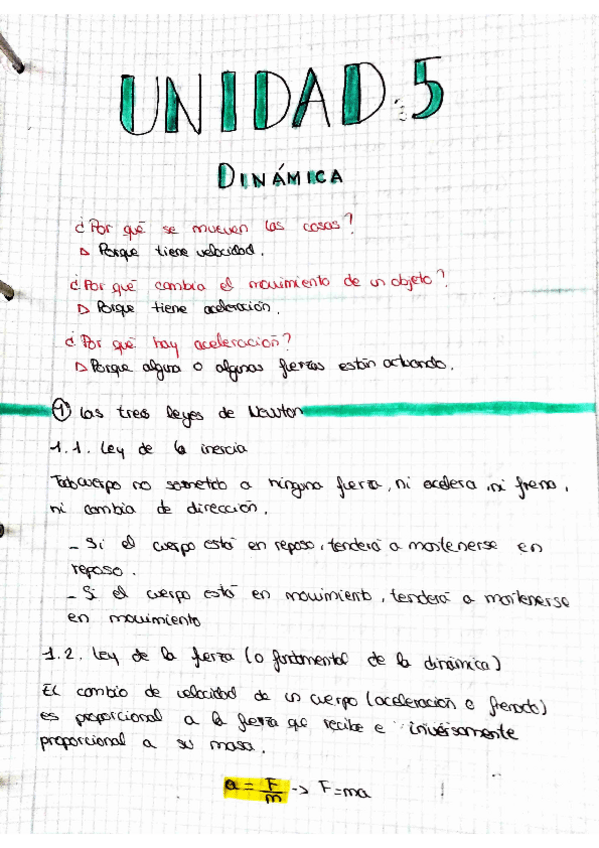 UNIDAD.5
DINÁMICA
¿Por qué se mueven las cosas?
▷ Porque tiene velocidad.
¿Por qué cambia el movimiento de un objeto?
▷ Porque tiene aceleración.
¿Por qué hay aceleración?
▷ Porque alguna o algunas fuerzas están actuando.
① Las tres leyes de Newton
1.1. Ley de la inercia
Todo cuerpo no sometido a ninguna fuerza, ni acelera, ni frena,
ni cambia de dirección.
- Si el cuerpo está en reposo, tenderá a mantenerse en
reposo.
- Si el cuerpo está en movimiento, tenderá a mantenerse
en movimiento
1.2. Ley de la fuerza (o fundamental de la dinámica)
El cambio de velocidad de un cuerpo (aceleración o frenado)
es proporcional a la fuerza que recibe e inversamente
proporcional a su masa.
a = F/m -> F=ma